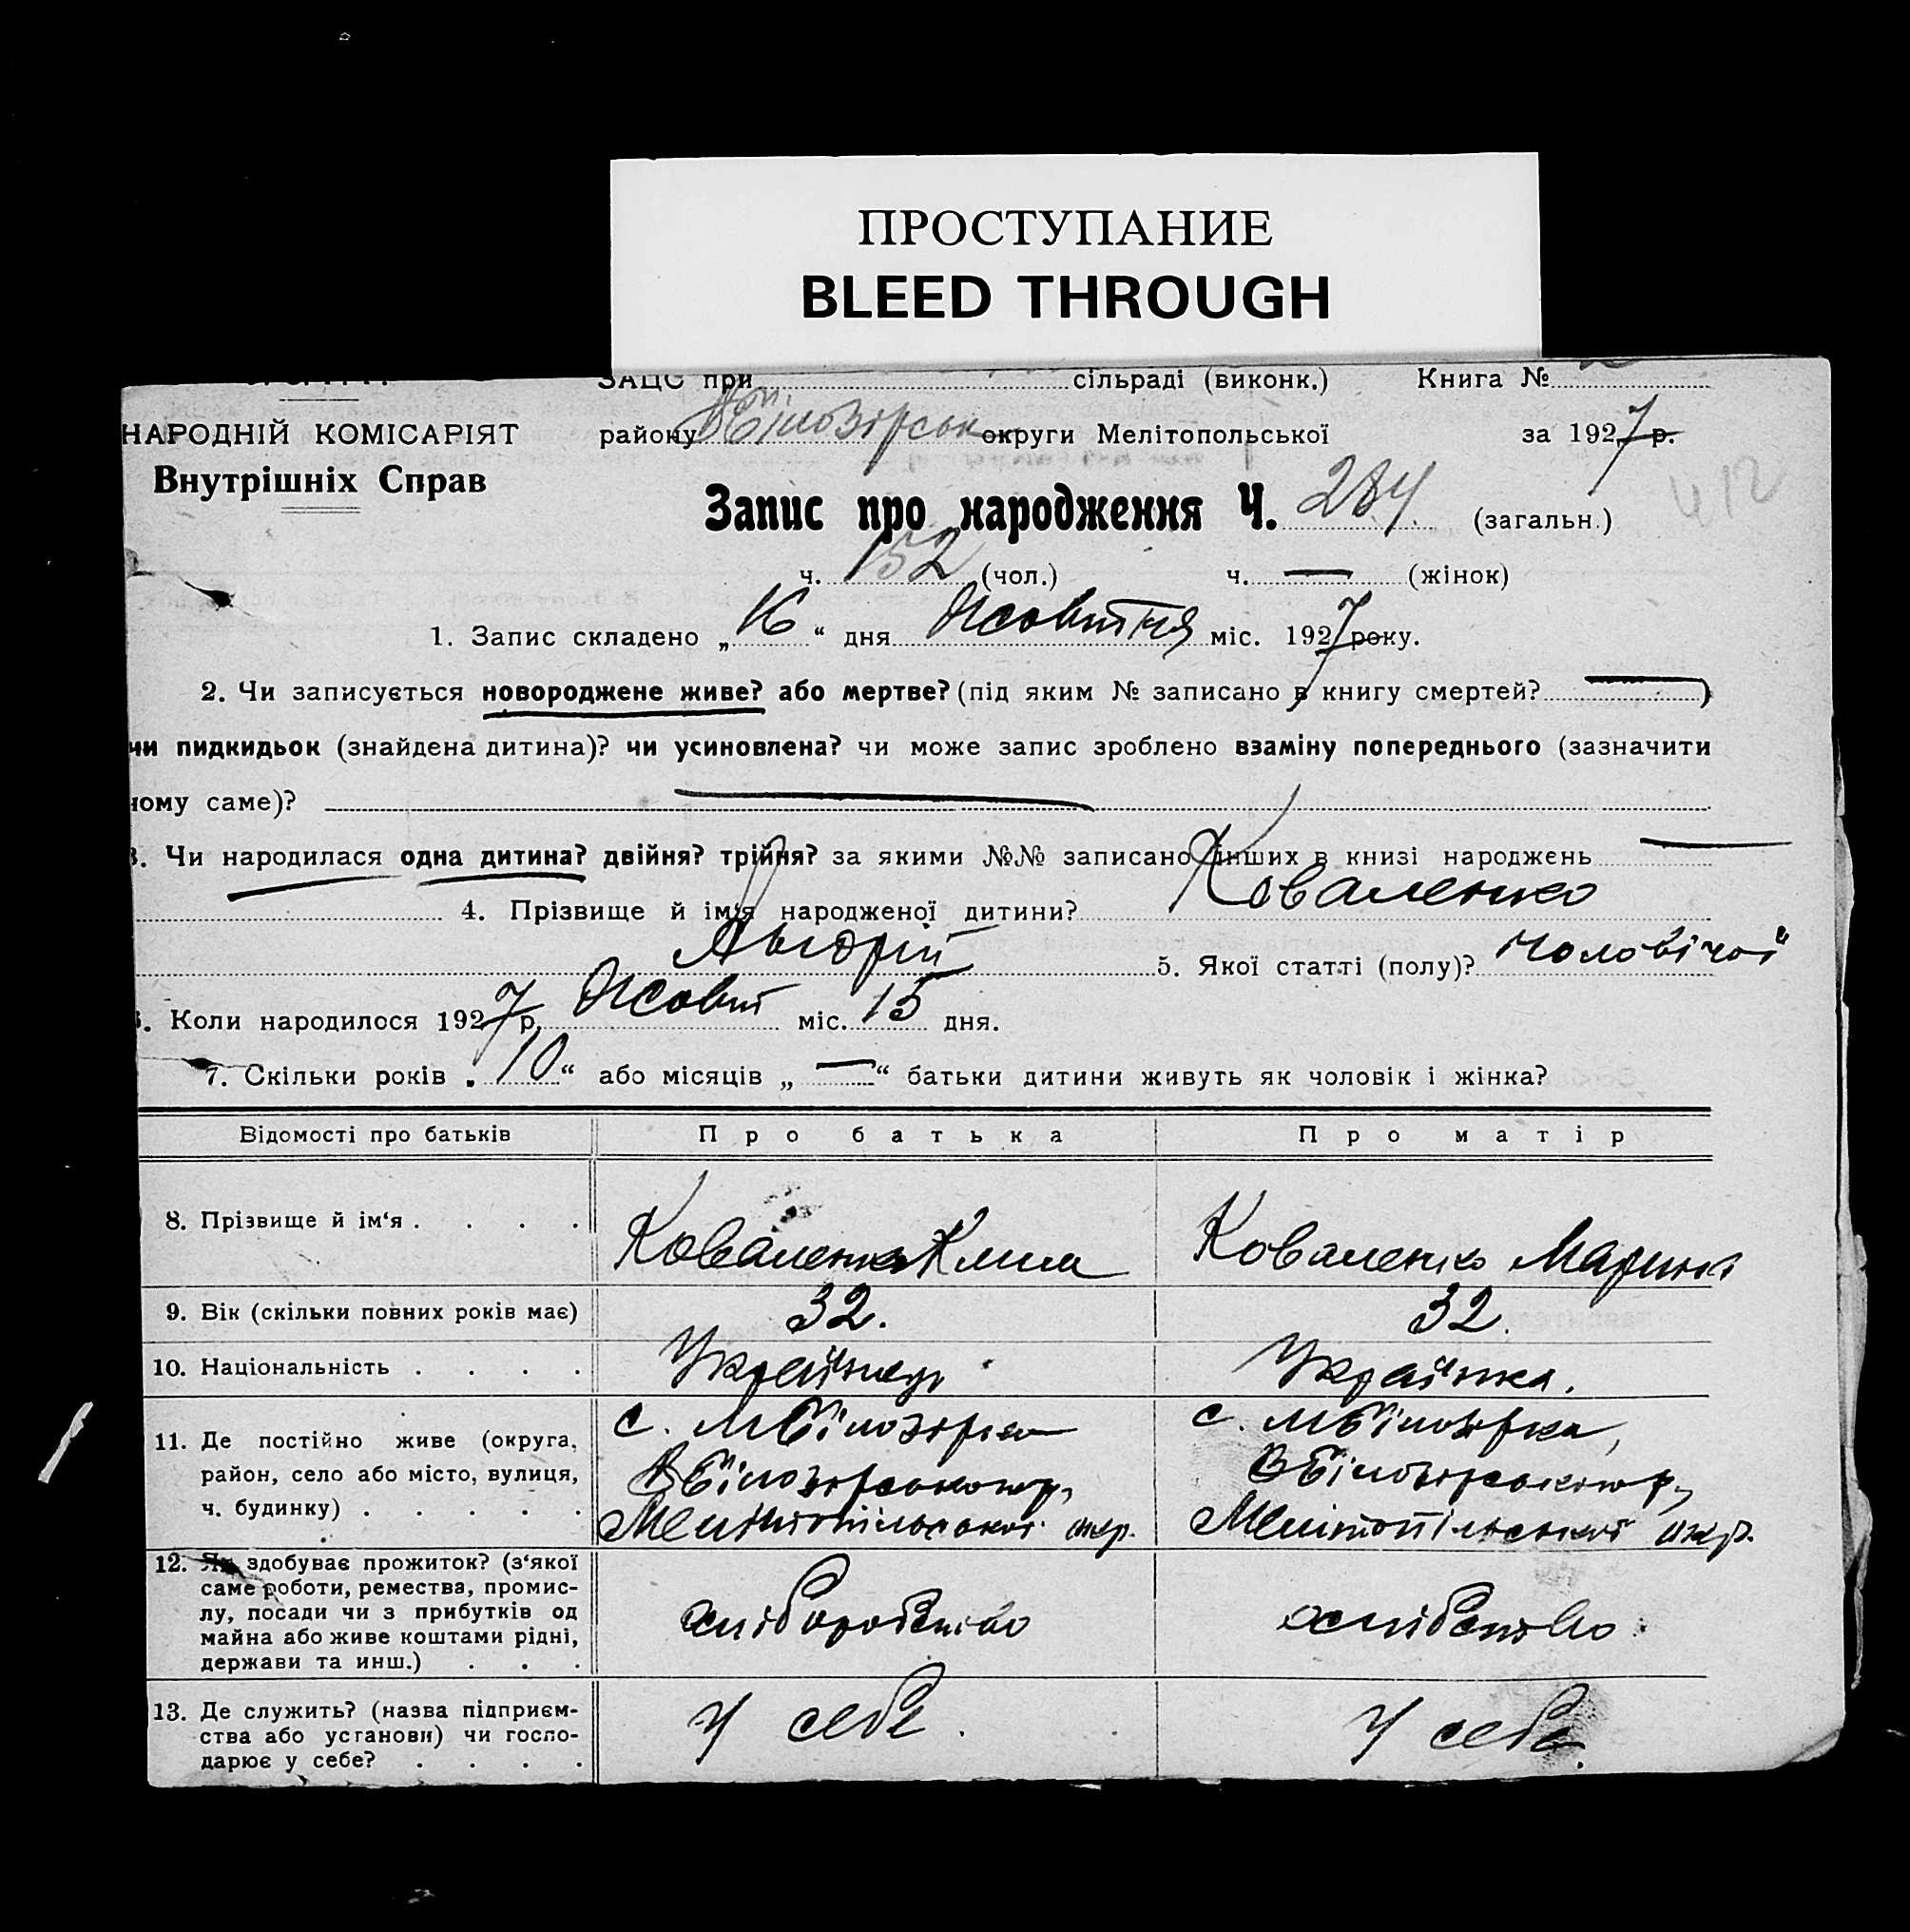 ПРОСТУПАНИЕ
BLEED THROUGH
ЗАЦС при сільраді (виконк.) Книга №
НАРОДНІЙ КОМІСАРІЯТ
Внутрішніх Справ
району округи Мелітопольської за 1927 р.
412
Запис про народження Ч. 284 (загальн.)
ч. 152 (чол.) ч. — (жінок)
1. Запис складено „16“ дня Жовтня міс. 1927 року.
2. Чи записується новороджене живе? або мертве? (під яким № записано в книгу смертей? —)
чи пидкидьок (знайдена дитина)? чи усиновлена? чи може запис зроблено взаміну попереднього (зазначити
чому саме)? —
3. Чи народилася одна дитина? двійня? трійня? за якими №№ записано інших в книзі народжень —
4. Прізвище й ім‘я народженої дитини? Коваленко
Андрій 5. Якої статті (полу)? Чоловічої
6. Коли народилося 1927 р. Жовт міс. 15 дня.
7. Скільки років „10“ або місяців „—“ батьки дитини живуть як чоловік і жінка?
Відомості про батьків Про батька Про матір
8. Прізвище й ім‘я . . . . Коваленко Клим Коваленко Марина
9. Вік (скільки повних років має) 32. 32.
10. Національність . . . . Українець Українка.
11. Де постійно живе (округа,
район, село або місто, вулиця,
ч. будинку) . . . . .
с. МБілозірка
ВБілозірського р,
Мелітопільської окр.
с. МБілозірка,
ВБілозірського р,
Мелітопільської окр.
12. Як здобуває прожиток? (з‘якої
саме роботи, ремества, промис-
лу, посади чи з прибутків од
майна або живе коштами рідні,
держави та инш.) . . .
хліборобство
13. Де служить? (назва підприєм-
ства або установи) чи госпо-
дарює у себе? . . . .
У себе.
У себе.